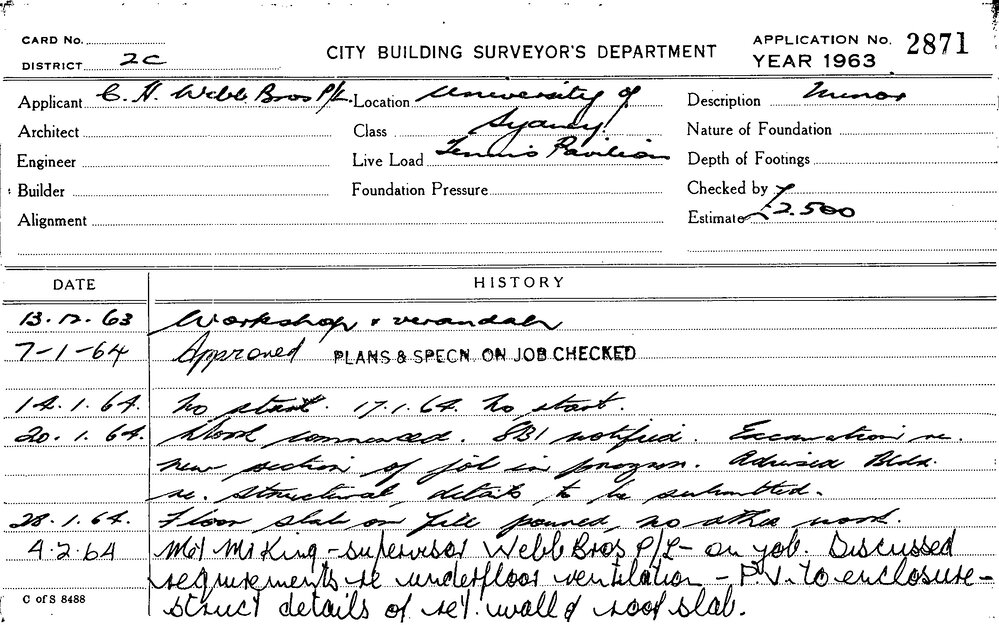 CARD No.
DISTRICT 2C
CITY BUILDING SURVEYOR'S DEPARTMENT
APPLICATION No. 2871
YEAR 1963
Applicant C. H. Webb Bros P/L. Location University of Description Minor
Architect Class Sydney. Nature of Foundation
Engineer Live Load Tennis Pavilion Depth of Footings
Builder Foundation Pressure Checked by
Alignment Estimate £2.500
DATE HISTORY
13.12.63 Workshop & verandah
7-1-64 Approved PLANS & SPECN. ON JOB CHECKED
14.1.64. No start. 17.1.64. No start.
20.1.64. Work commenced. SBI notified. Excavation re.
new section of job in progress. Advised Bldr.
re. structural details to be submitted.
28.1.64. Floor slab on fill poured, no other work.
4.2.64 Met Mr King - supervisor Webb Bros P/L - on job. Discussed
requirements re underfloor ventilation - P.V. to enclosure -
struct details of ret. wall & roof slab.
C of S 8488